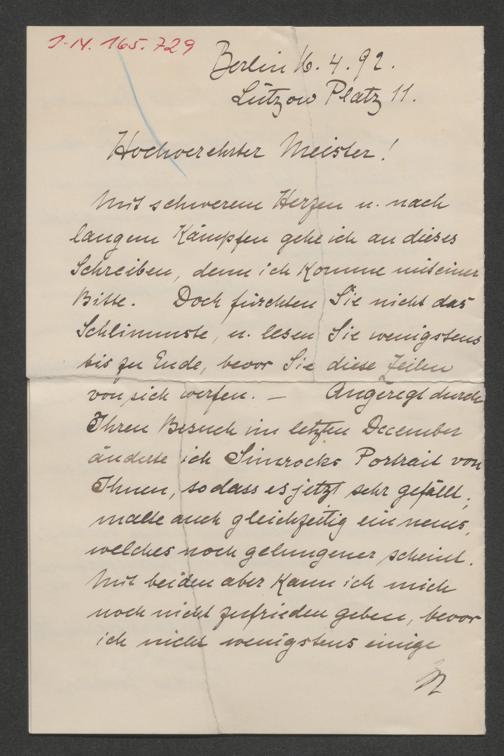 J.N. 165.729
Berlin 16.4.92.
Lützow Platz 11.
Hochverehrter Meister!
Mit schwerem Herzen u. nach
langem Kämpfen gehe ich an dieses
Schreiben, denn ich komme mit einer
Bitte. Doch fürchten Sie nicht das
Schlimmste, u. lesen Sie wenigstens
bis zu Ende, bevor Sie diese Zeilen
von sich werfen. — Angeregt durch
Ihren Besuch im letzten December
änderte ich Simrocks Portrait von
Ihnen, sodass es jetzt sehr gefällt,
malte auch gleichzeitig ein neues,
welches noch gelungener scheint.
Mit beiden aber kann ich mich
noch nicht zufrieden geben, bevor
ich nicht wenigstens einige